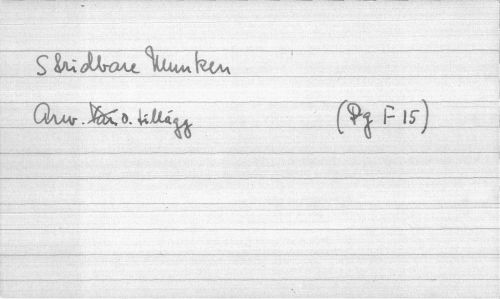 Stridbare Munken
Anv. o. tillägg (Pg F 15)